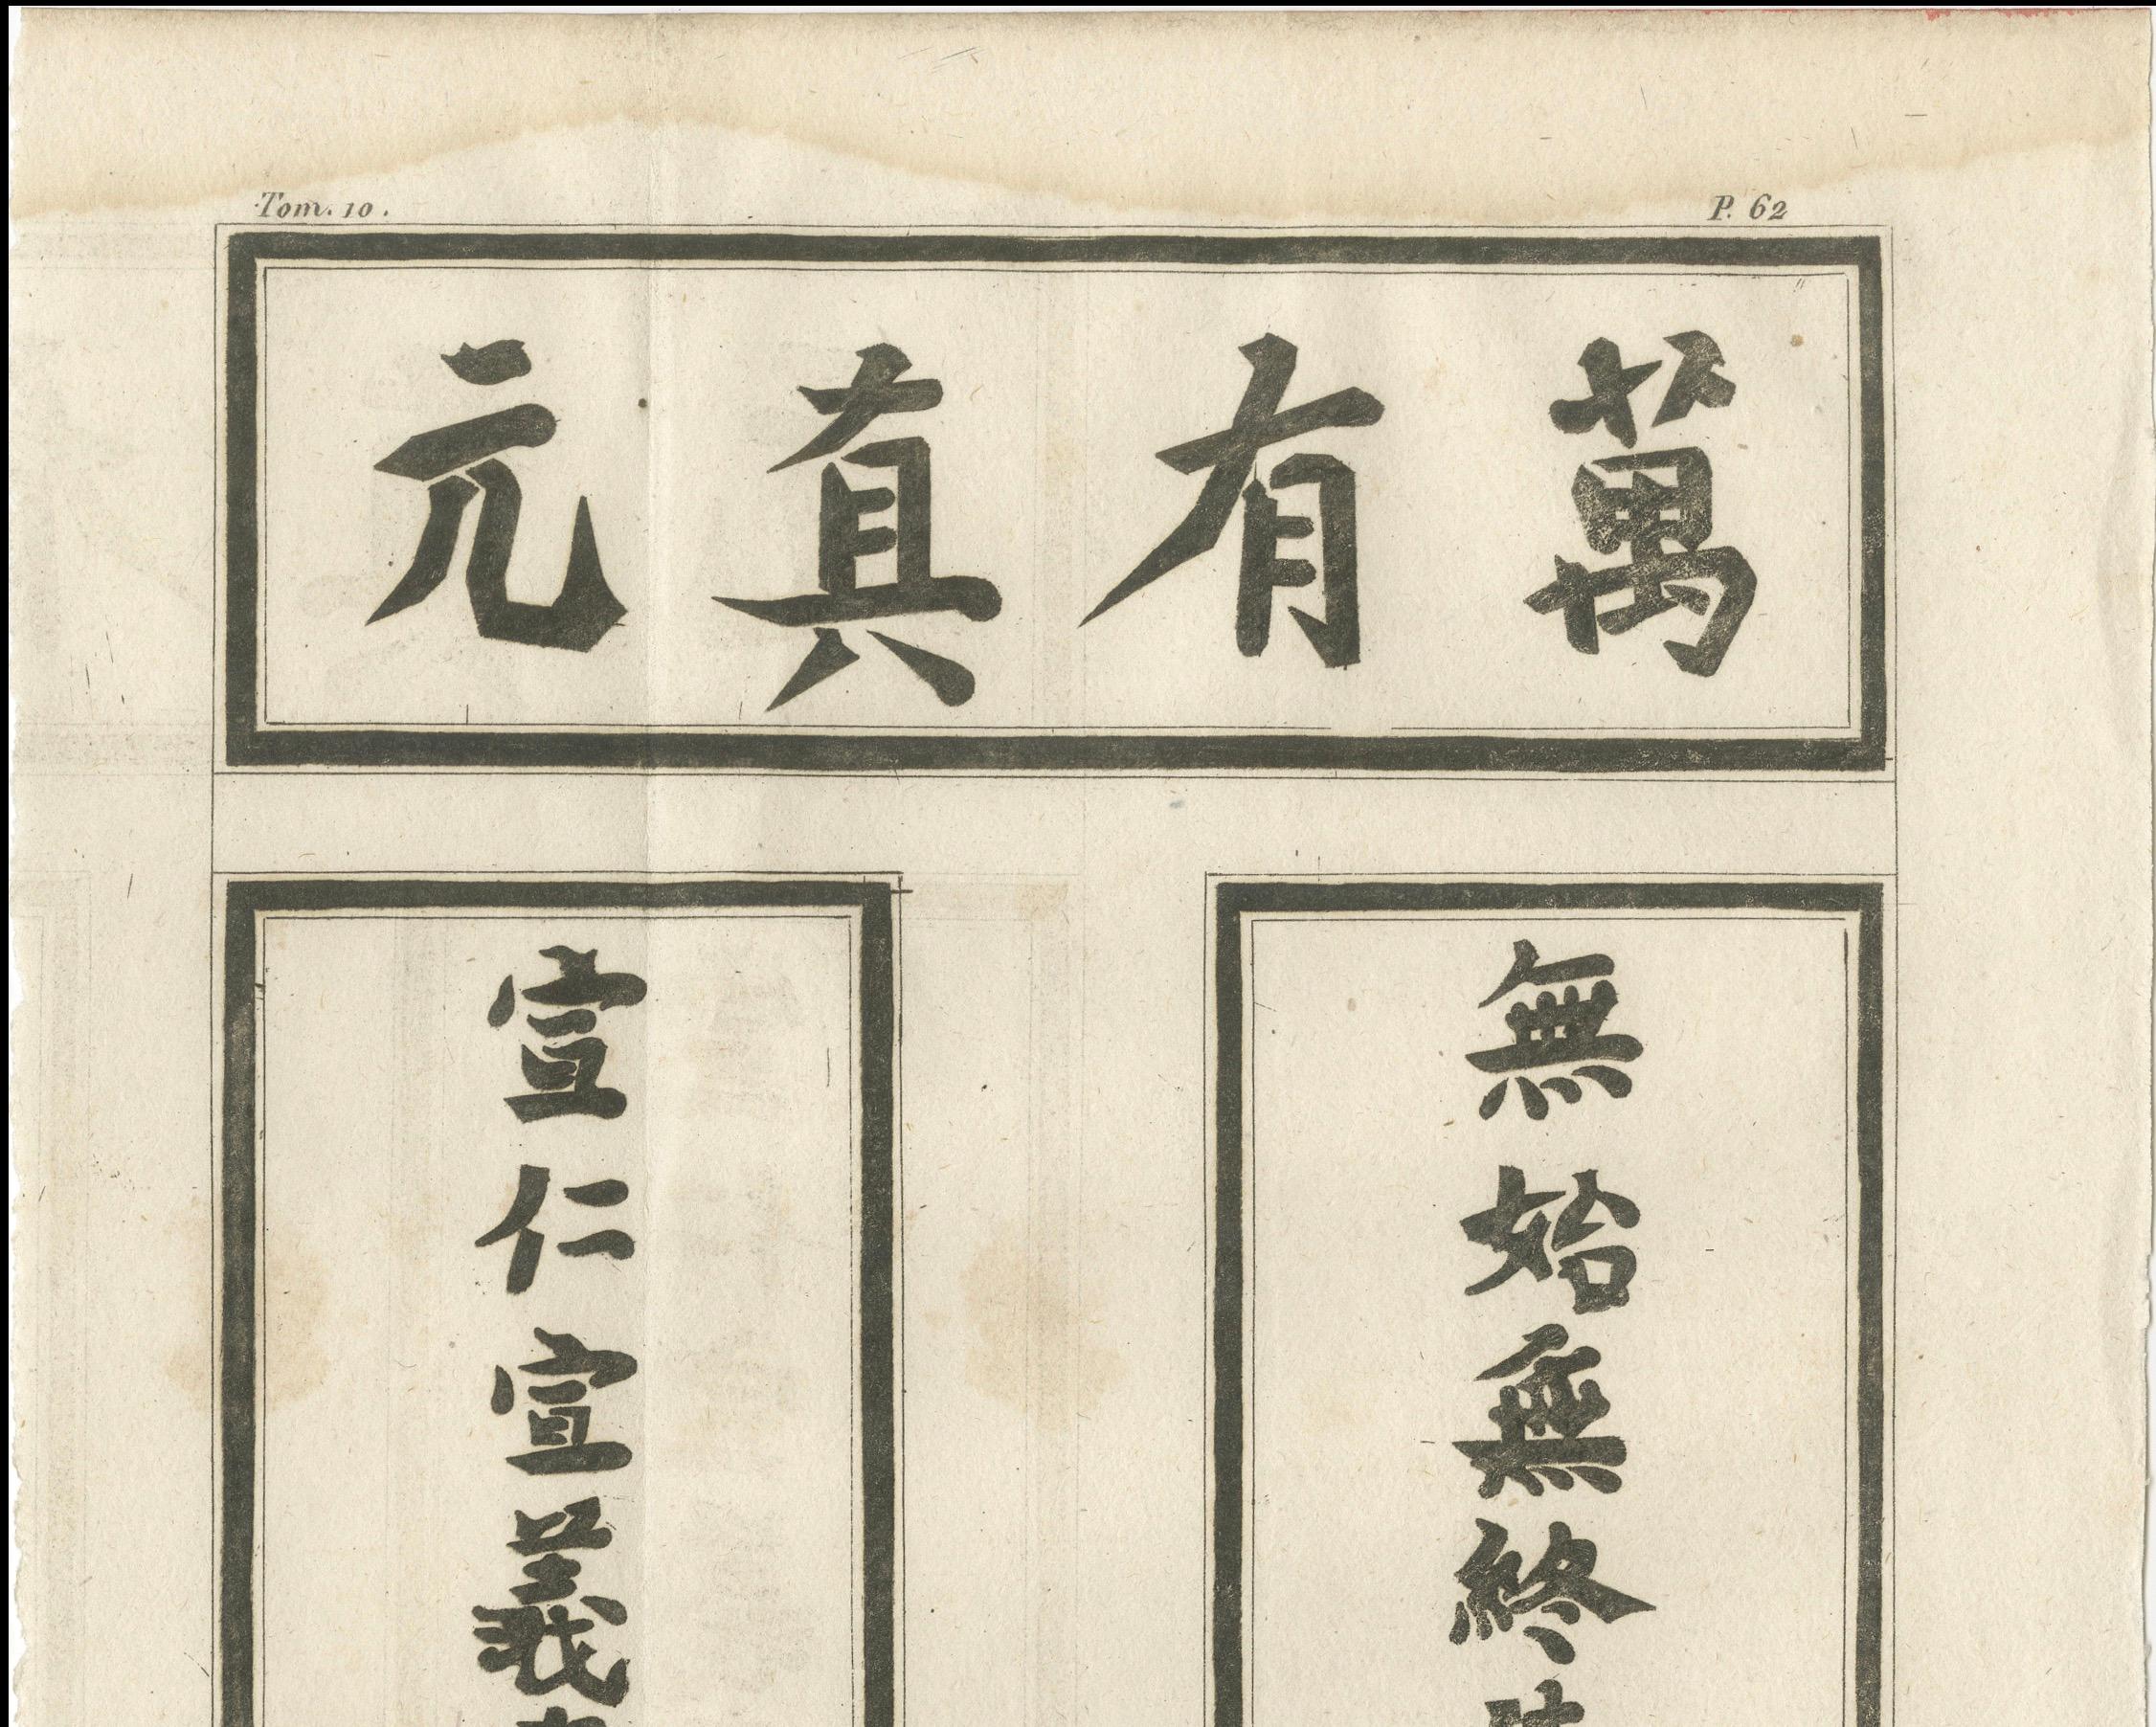 Tom. 10.
P. 62
萬有真元
無始無終
宣仁宣義